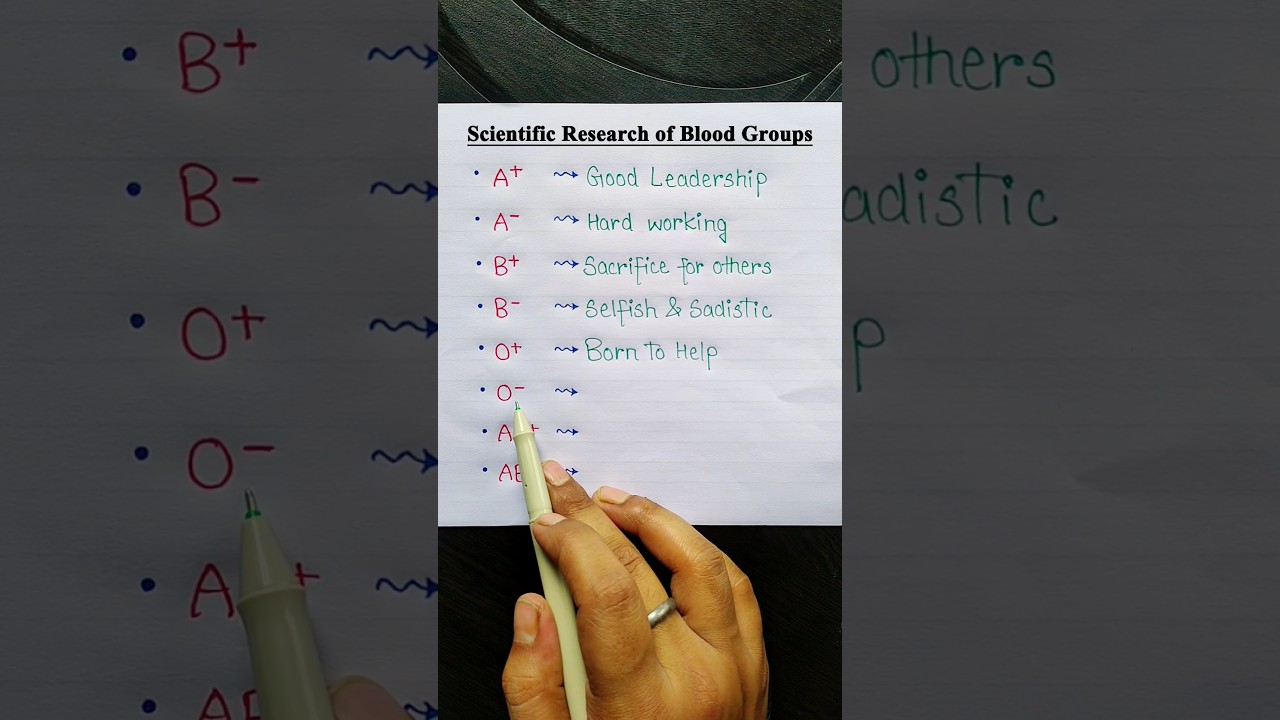 Scientific Research of Blood Groups
• A+ ⇝ Good Leadership
• A- ⇝ Hard working
• B+ ⇝ Sacrifice for others
• B- ⇝ Selfish & Sadistic
• O+ ⇝ Born to Help
• O- ⇝
• A + ⇝
• AB ⇝